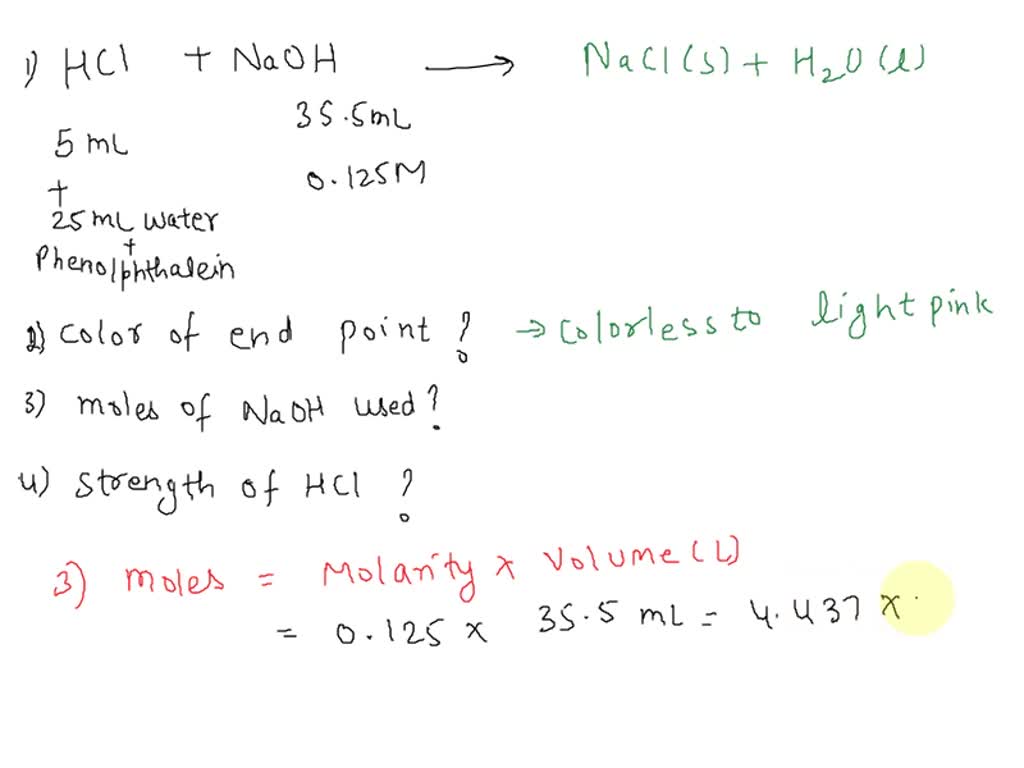 1) HCl + NaOH → NaCl(s) + H₂O(l)
35.5mL
5 mL
0.125M
+
25 mL water
+
Phenolphthalein
2) color of end point ? → colorless to light pink
3) moles of NaOH used?
4) strength of HCl ?
3) moles = Molarity x Volume (L)
= 0.125 x 35.5 mL = 4.437 x